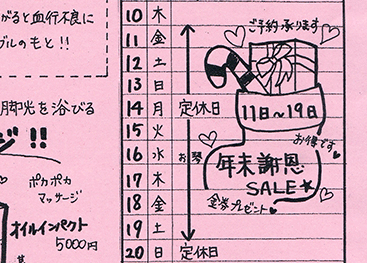 がると血行不良に
ブルのもと!!
脚光を浴びる
ジ!!
ポカポカ
マッサージ
オイルインパクト
5000円
10 木
11 金
12 土
13 日
14 月 定休日
15 火
16 水
17 木
18 金
19 土
20 日 定休日
ご予約承ります
11日~19日
お得です
年末謝恩
SALE★
金券プレゼント